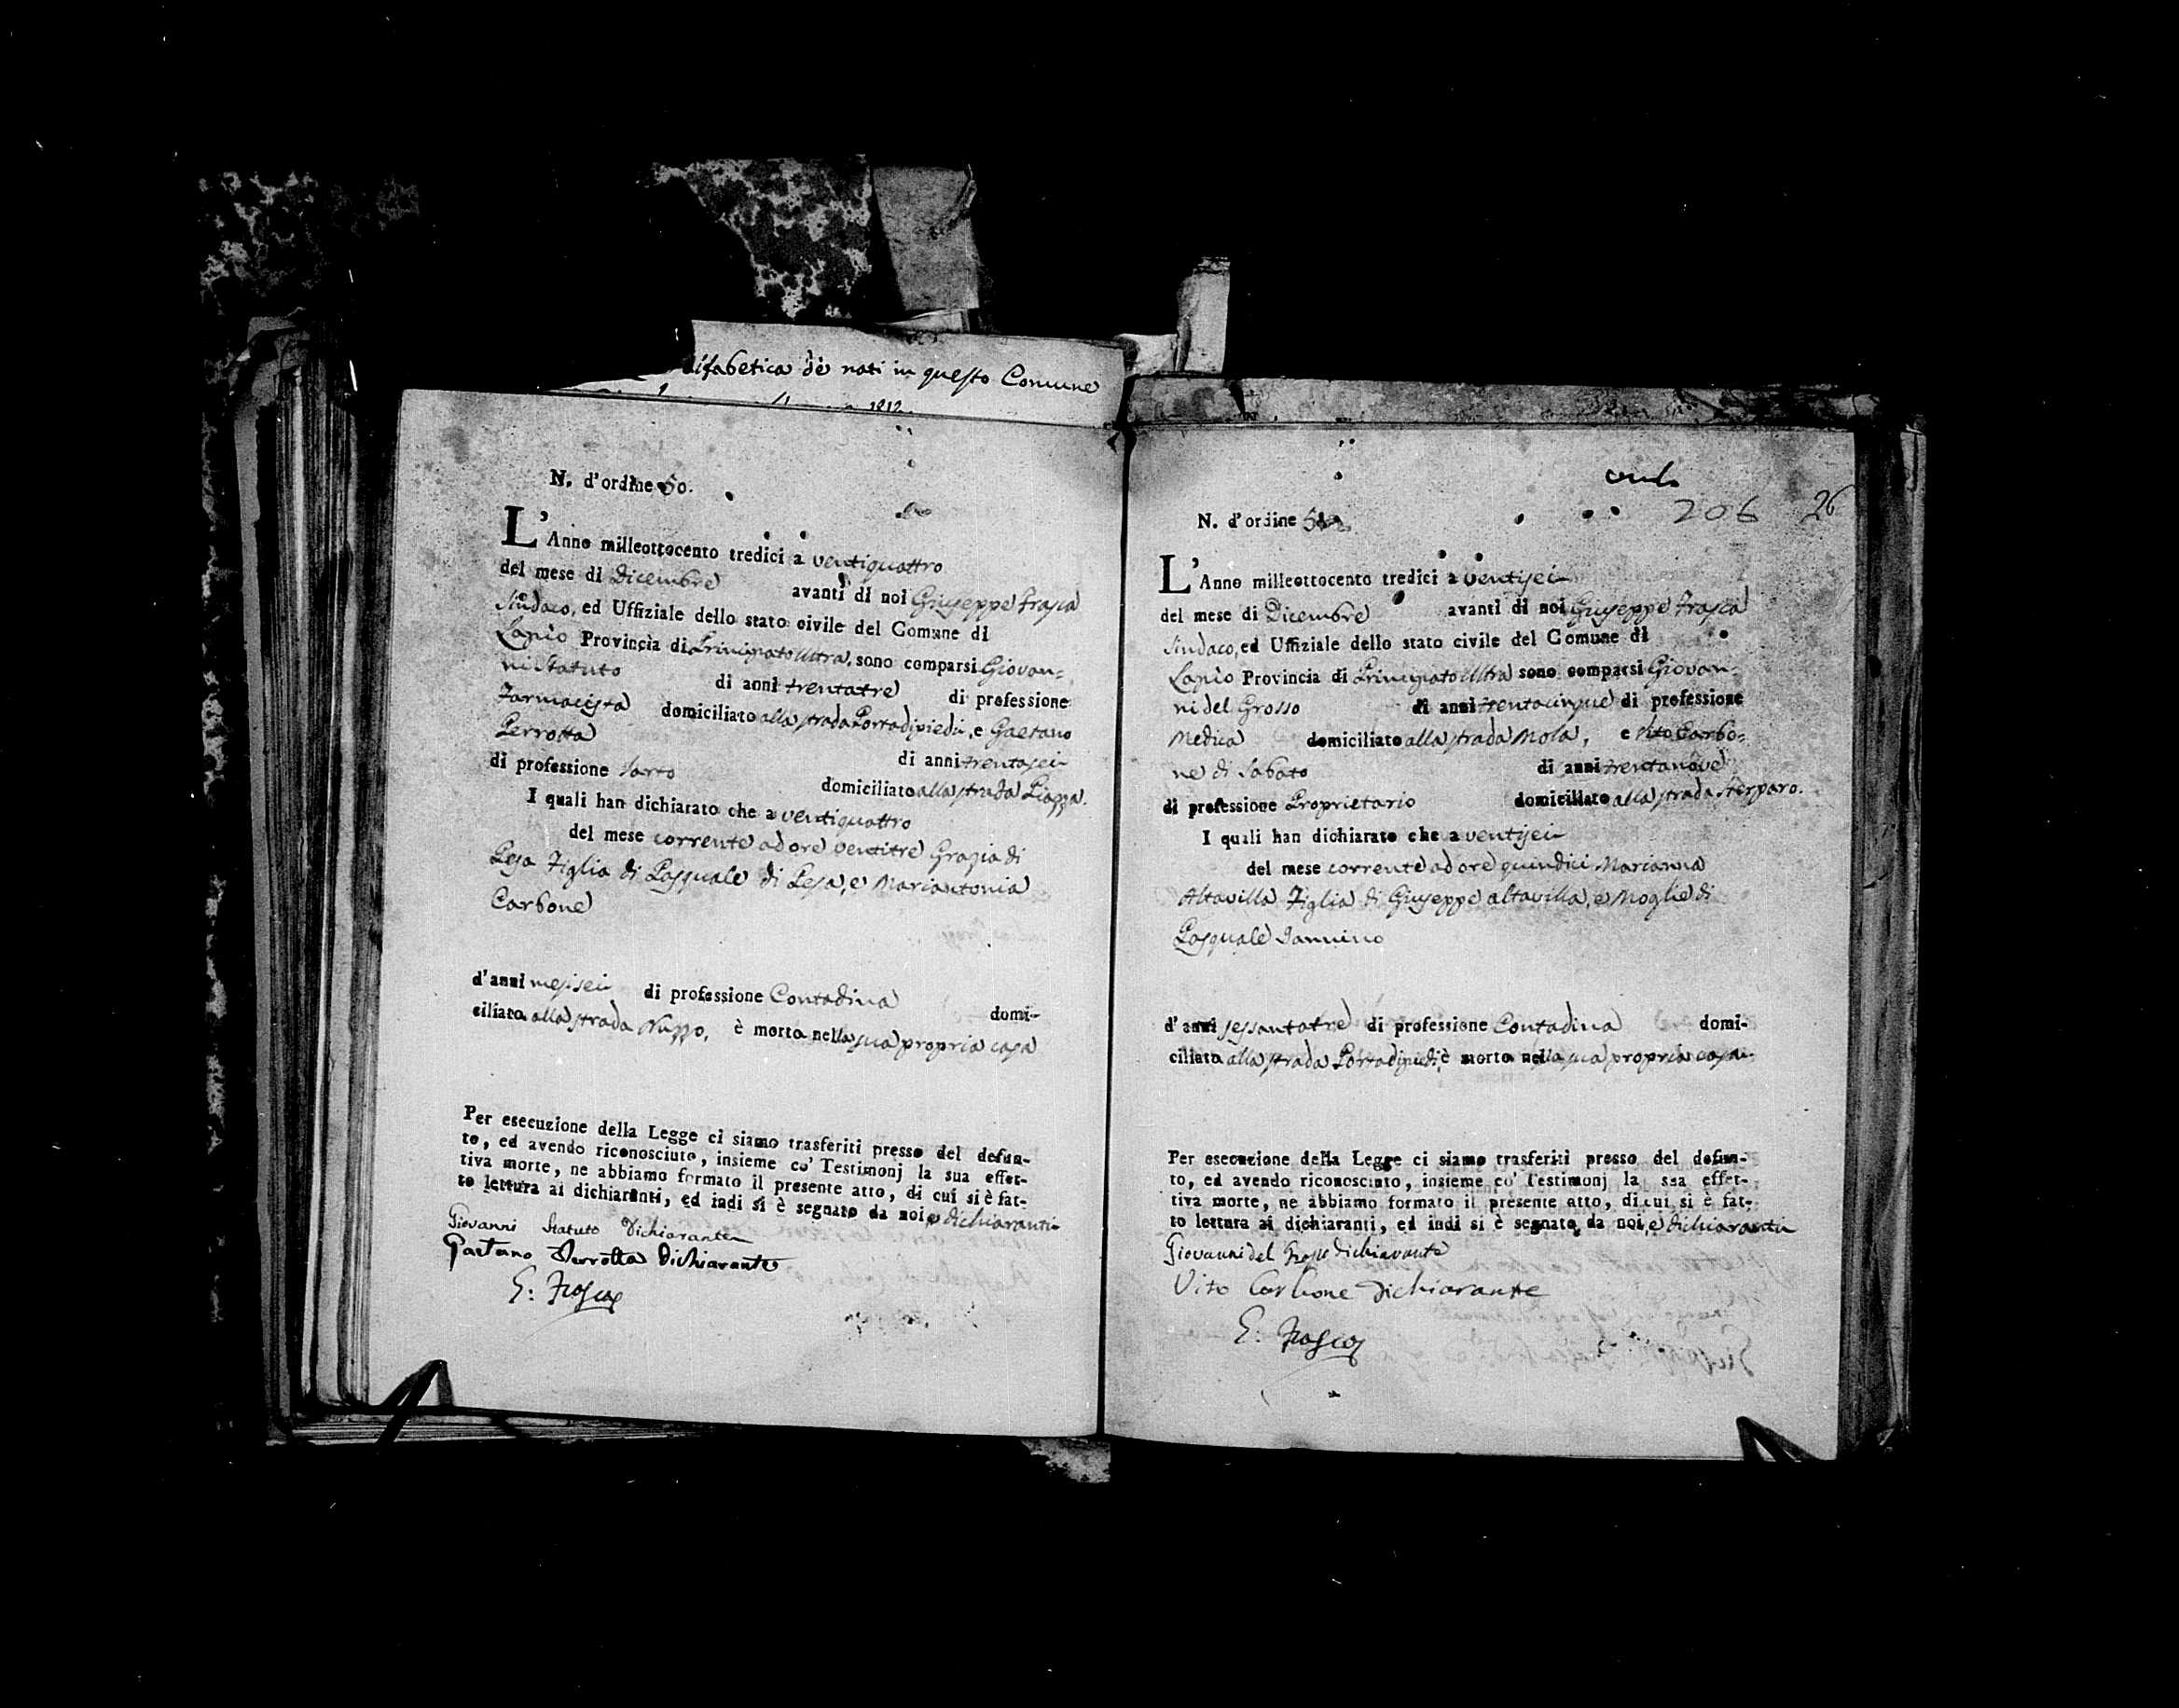 alfabetica de nati in questo Comune
1812
N. d'ordine 50.
L'Anno milleottocento tredici a ventiquattro
del mese di Dicembre avanti di noi Giuseppe Frasca
Sindaco, ed Uffiziale dello stato civile del Comune di
Lapio Provincia di Principato Ultra, sono comparsi Giovan=
ni Statuto di anni trentatre di professione
Farmacista domiciliato alla strada Portadipiedi, e Gaetano
Perrotta di anni trentasei
di professione Sarto domiciliato alla strada Piazza.
I quali han dichiarato che a ventiquattro
del mese corrente ad ore ventitre Grazia di
Pesa Figlia di Pasquale di Pesa, e Mariantonia
Carbone
d'anni mesi sei di professione Contadina domi-
ciliata alla strada Nuzzo, è morta nella sua propria casa
Per esecuzione della Legge ci siamo trasferiti presso del defun-
to, ed avendo riconosciuto, insieme co' Testimonj la sua effet-
tiva morte, ne abbiamo formato il presente atto, di cui si è fat-
to lettura ai dichiaranti, ed indi si è segnato da noi, e dichiaranti
Giovanni Statuto Dichiarante
Gaetano Perrotta Dichiarante
G: Frasca
206 26
N. d'ordine
L'Anno milleottocento tredici a ventisei
del mese di Dicembre avanti di noi Giuseppe Frasca
Sindaco, ed Uffiziale dello stato civile del Comune di
Lapio Provincia di Principato Ultra sono comparsi Giovan=
ni del Grosso di anni trentacinque di professione
Medica domiciliato alla strada Mola, e Vito Carbo=
ne di Sabato di anni trentanove
di professione Proprietario domiciliato alla strada Sterparo.
I quali han dichiarato che a ventisei
del mese corrente ad ore quindici Marianna
Altavilla Figlia di Giuseppe altavilla, e Moglie di
Pasquale Iannino
d'anni sessantatre di professione Contadina domi-
ciliata alla strada Portadipiedi, è morta nella sua propria casa
Per esecuzione della Legge ci siamo trasferiti presso del defun-
to, ed avendo riconosciuto, insieme co' Testimonj la sua effet-
tiva morte, ne abbiamo formato il presente atto, di cui si è fat-
to lettura ai dichiaranti, ed indi si è segnato da noi, e dichiaranti
Giovanni del Grosso dichiarante
Vito Carbone dichiarante
G: Frasca